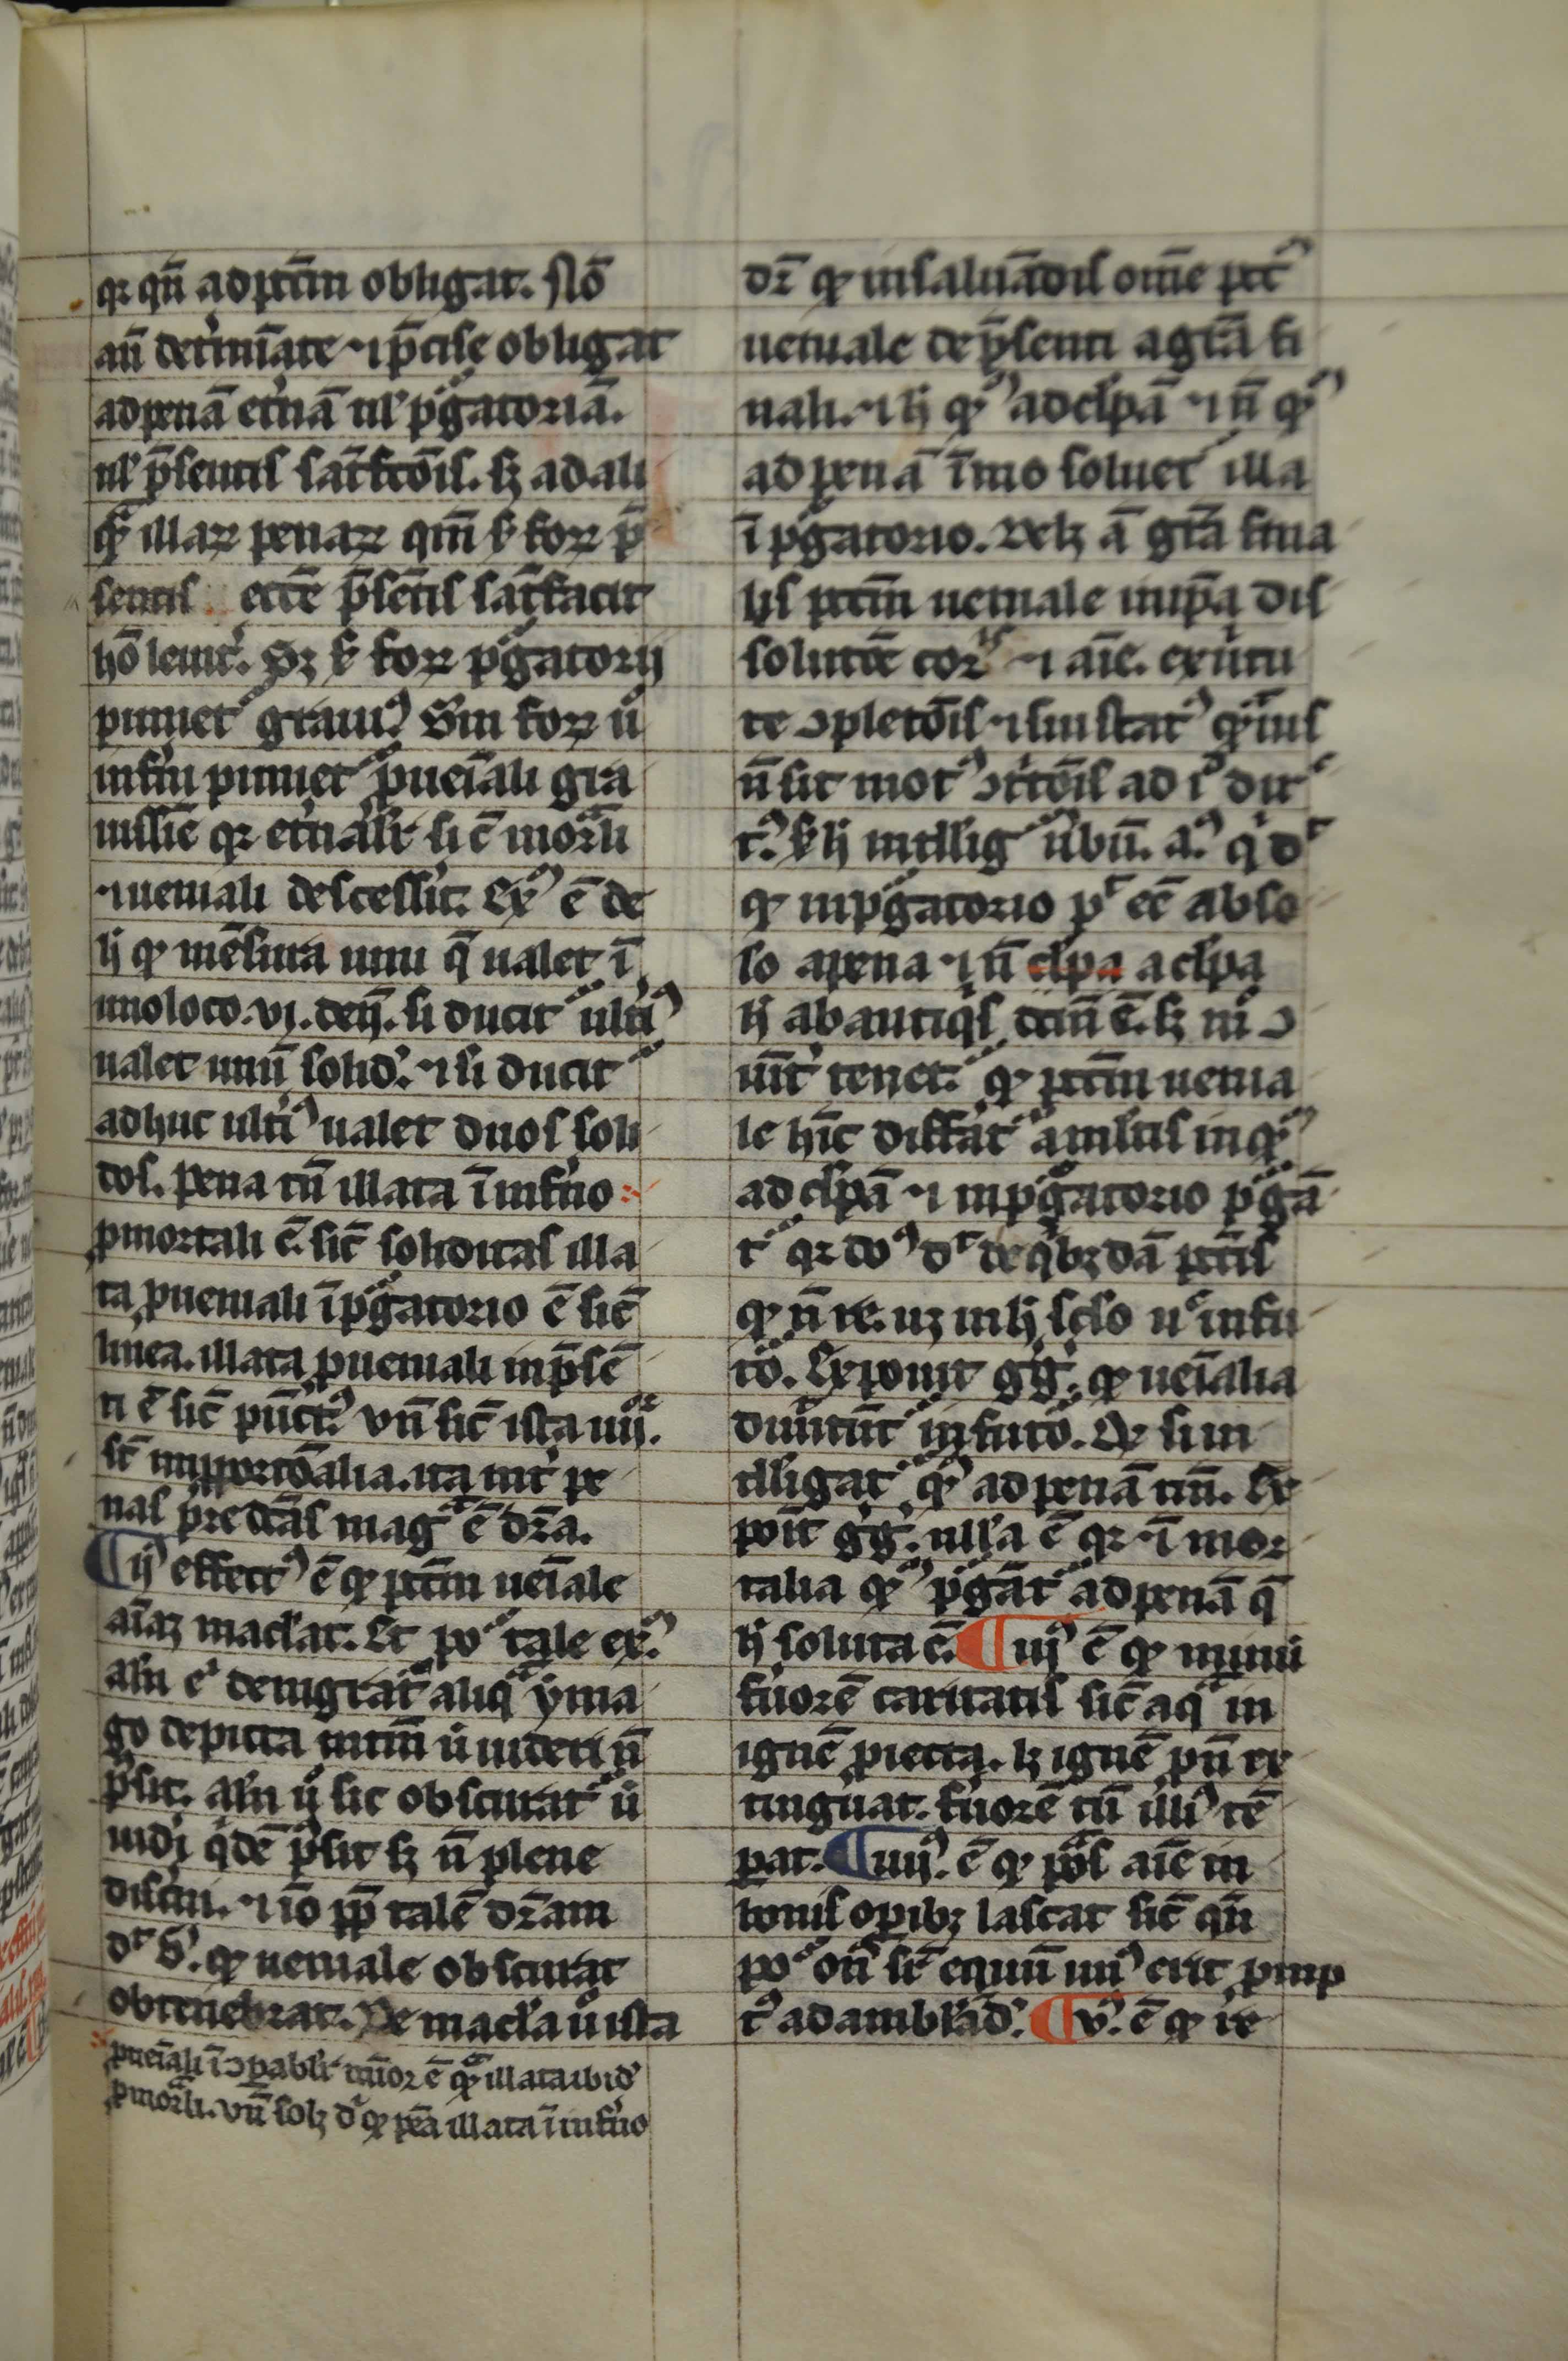 qr qn̄ ad pctm̄ obligat. Nō
aū det'mīate ⁊ p̄cise obligat
ad penā et'nā ul' pᵃgatoriā.
ul' p̄sentis sat̄fctōis. sꝫ ad ali
qᷓ illaꝝ penaꝝ qm̄ ꝟ foꝝ p̄
sentis etc̄e p̄sētis sat̄facit
hō leuit'. Sꝫ ꝟ foꝝ pᵃgatorij
puniet᷑ grauiꝰ Sm foꝝ u̾
inf'ni puniet᷑ ꝓ ueīali gra
uissīe qr et'nal'r si c̄ mortᷓli
⁊ ueniali descessit. Exᵐ ē de
h̄ ꝙ mēsura uini q̄ ualet ī
uno loco .vj. den̄. si ducit᷑ ult'iꝰ
ualet unū solid'. ⁊ si ducit᷑
adhuc ult'iꝰ ualet duos soli
dos. pena tn̄ illata ī inf'no
ꝓ mortali ē. sic̄ soliditas illa
ta ꝓ ueniali ī pᵃgatorio ē sic̄
linea. illata ꝓ ueniali in p̄sē
ti ē sic̄ pūctꝰ vn̄ sic̄ ista iiijᵒʳ.
st̄ inꝓportōalia. ita int' pe
nas p̄redc̄as magᵃ ē dr̄a.
¶ ijꝰ effectꝰ ē ꝙ pctm̄ ueīale
aīaꝫ macl'at. Et poᵗ tale exᵐ.
al'n e' denigrat᷑ aliqᷓ yma
go depicta intm̄ u̾ uideri n̄
p̄sit. al'n u̾ sic obscurat᷑ u̾
uidi qdē p̄sit sꝫ n̄ plene
disc'ni. ⁊ iō pp̄ talē dr̄am
dʳ b'. ꝙ ueniale obscurat
obtenebrat. De macl'a u̾ ista
ꝓ ueīali ī ꝯpabl'r mīor ē qᷓ illata ibid'
ꝓ mortᷓli. vn̄ solꝫ dʳ ꝙ pēa illata ī inf'no
dr̄ ꝙ in saluādis om̄e pctᵐ
ueniale de p̄senti a grā fi
nali. ⁊ h̄ qᵒ ad cl'pā ⁊ n̄ qᵒ
ad penā īmo soluet᷑ illa
ī pᵃgatorio. Delꝫ ā grā fina
lis pctm̄ ueniale in ip̄a dis
solutōe corᵖⁱˢ ⁊ aīe. ex u'tu
te ꝯpletōis ⁊ sui statꝰ qᷓuis
n̄ sit motꝰ ꝯt'tōis ad iᵈ dirᶜ
tꝰ. ꝟ h̄ intllig᷑ u'bū. a.ꝰ qᵈ dʳ
ꝙ in pᵃgatorio pᵗ ee᷑ abso
so a pena ⁊ n̄ cl'pa a cl'pa
h̄ ab antiqis dc̄m ē. sꝫ nᵒ ꝯ
uīt' tenet᷑. ꝙ pctm̄ uenia
le hīc diffat᷑ a mltis inqᵒ
ad cl'pā ⁊ in pᵃgatorio pᵃgā
t᷑ qr doᵐ dʳ de qbꝫdā pctīs
ꝙ n̄ re. uꝫ in h̄ sclo n̄ᶜ in fu
to. Exponit gg᷑. ꝙ ueīalia
dimitūt᷑ in futo. Qᵉ si in
tlligat᷑ qᵒ ad penā tm̄. Ex
poīt gg᷑. nll'a ē qr ⁊ ī mor
talia qᵒ pᵃgāt᷑ ad penā q̄
h̄ soluta ē. ¶ iijꝰ ē ꝙ minui
f'uorē caritatis sic̄ aqᷓ in
ignē ꝓiecta. lꝫ ignē pn̄ ex
tinguat. f'uorē tn̄ illiꝰ tē
perat. ¶ iiijꝰ. ē ꝙ pōs aīe in
bonis opibꝫ lascat sic̄ qn̄
poᵗ on̄ sr̄ equū miꝰ erit pmp
tꝰ ad ambl'ad'. ¶ vꝰ. ē ꝙ re